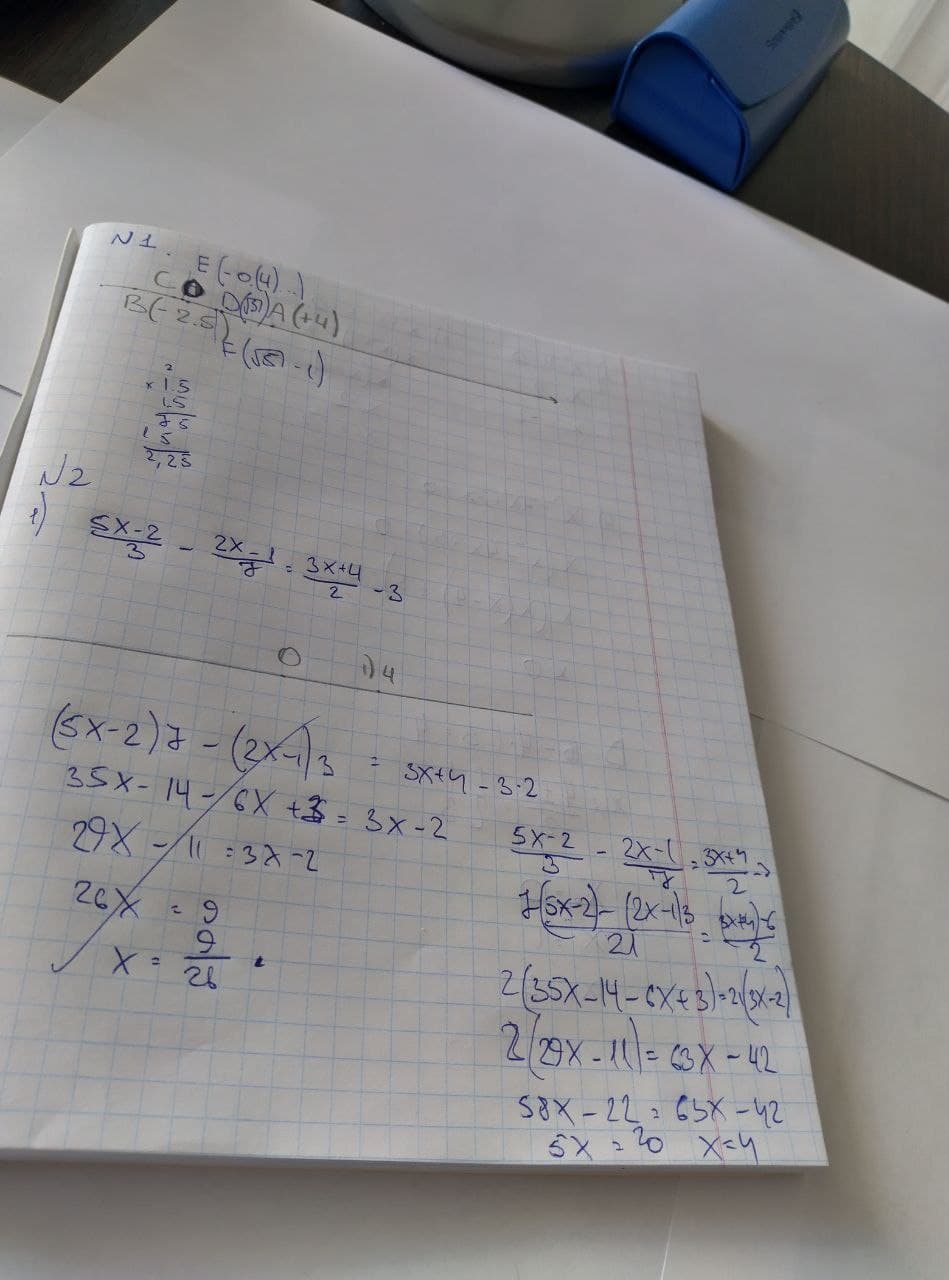 N1.
E(-0(4)..)
C O D(√3) A(+4)
B(-2.5)
F(√5 - 1)
2
× 1.5
1.5
7 5
1 5
2,25
N2
1) (5x-2)/3 - (2x-1)/7 = (3x+4)/2 - 3
O 1) 4
(5x-2)7 - (2x-1)3 = 3x+4 - 3·2
35x - 14 - 6x + 3 = 3x - 2
29x - 11 = 3x - 2
26x = 9
x = 9/26.
(5x-2)/3 - (2x-1)/7 = (3x+4)/2 →
(7(5x-2) - (2x-1)3)/21 = ((3x+4)-6)/2
2(35x-14-6x+3)=21(3x-2)
2(29x-11) = 63x - 42
58x - 22 = 63x - 42
5x = 20 x=4